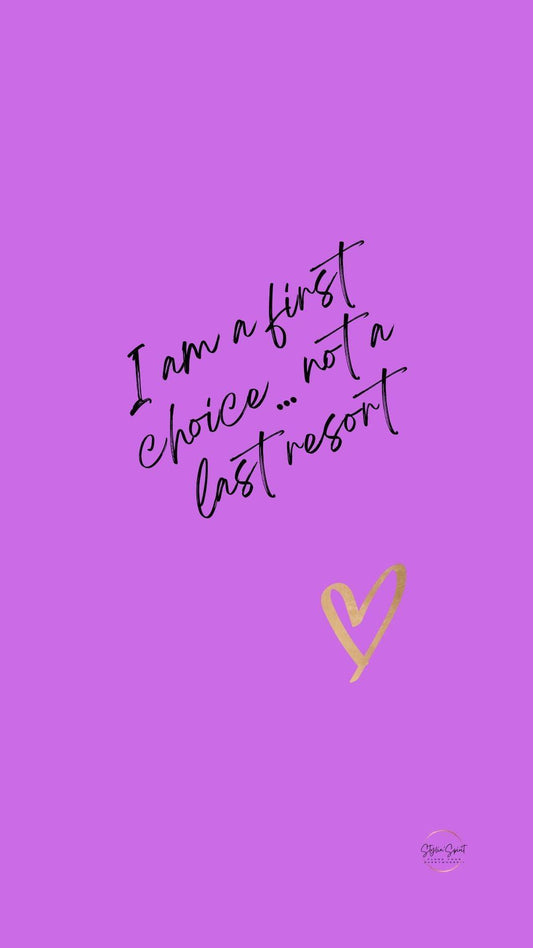 I am a first
choice ... not a
last resort
Stylin' Spirit